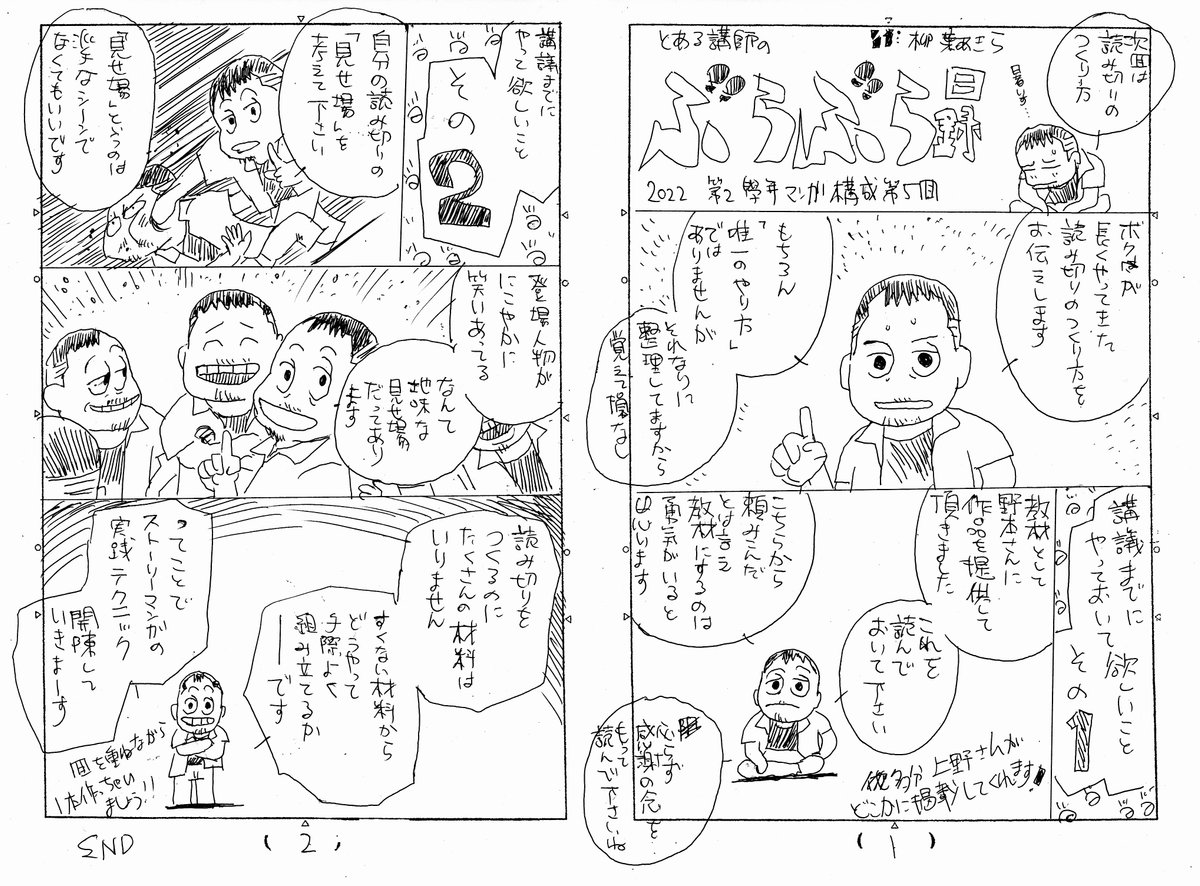 とある講師の
ぶらぶら目録
2022 第2學年マンガ構成第5回
次回は
読み切りの
つくり方
暑いす…
ボクが
長くやってきた
読み切りのつくり方を
お伝えします
もちろん
「唯一のやり方」
では
ありませんが
それなりに
整理してますから
覚えて損なし
講議までに
やっておいて欲しいこと
その1
教材として
野本さんに
作品を提供して
頂きました
こちらから
頼みこんだ
とは言え
教材にするのは
勇気がいると
思います
これを
読んで
おいて下さい
必ず
感謝の念を
もって
読んで下さいね
後多分上野さんが
どこかに掲載してくれます!
(1)
講議までに
やって欲しいこと
その2
自分の読み切りの
「見せ場」を
考えて下さい
「見せ場」というのは
派手なシーンで
なくてもいいです
登場人物が
にこやかに
笑いあってる
なんて
地味な
見せ場
だってあり
ます
読み切りを
つくるのに
たくさんの材料は
いりません
すくない材料から
どうやって
手際よく
組み立てるか
――です
ってことで
ストーリーマンガの
実践テクニック
開陳して
いきまーす
回を重ねながら
1本作っちゃい
ましょう!!
END
(2)